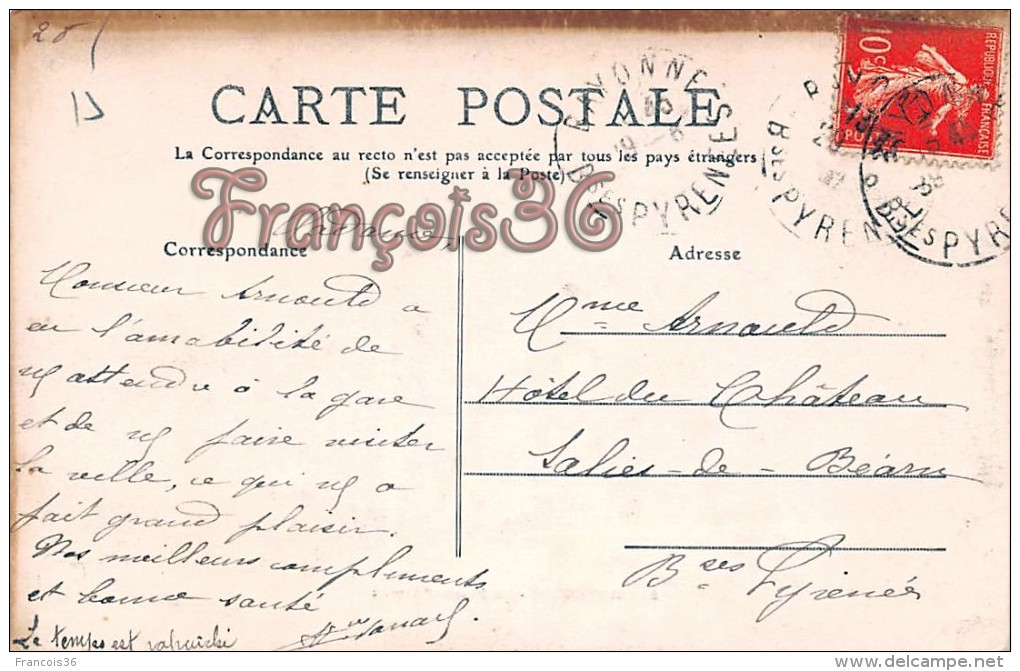 28
CARTE POSTALE
La Correspondance au recto n'est pas acceptée par tous les pays étrangers
(Se renseigner à la Poste)
François36
BAYONNE
Bses PYRENEES
RÉPUBLIQUE FRANÇAISE
10c
POSTES
Correspondance
Madame,
Monsieur Arnould a
eu l'amabilité de
ns attendre à la gare
et de ns faire visiter
la ville, ce qui ns a
fait grand plaisir.
Nos meilleurs compliments
et bonne santé
Le temps est rafraichi
Adresse
Mme Arnould
Hôtel du Château
Salies-de-Béarn
Bses Pyrénées
Francois36
delcampe.net